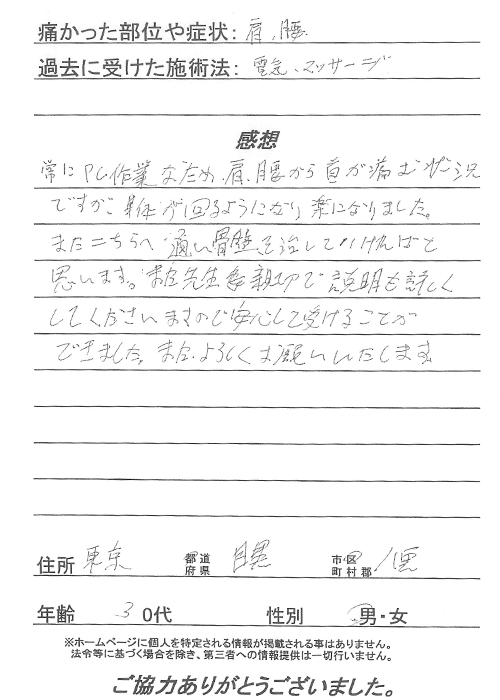 痛かった部位や症状：肩、腰
過去に受けた施術法：電気、マッサージ
感想
常にPC作業なため、肩、腰から首が痛む状況
ですが、身体が回るようになり楽になりました。
またこちらへ通い骨盤を治していければと
思います。また先生も親切で説明も詳しく
してくださいますので安心して受けることが
できました。また、よろしくお願いいたします。
住所 東京 都道府県 目黒 市・区町村郡
年齢 30代 性別 男・女
※ホームページに個人を特定される情報が掲載される事はありません。
法令等に基づく場合を除き、第三者への情報提供は一切行いません。
ご協力ありがとうございました。